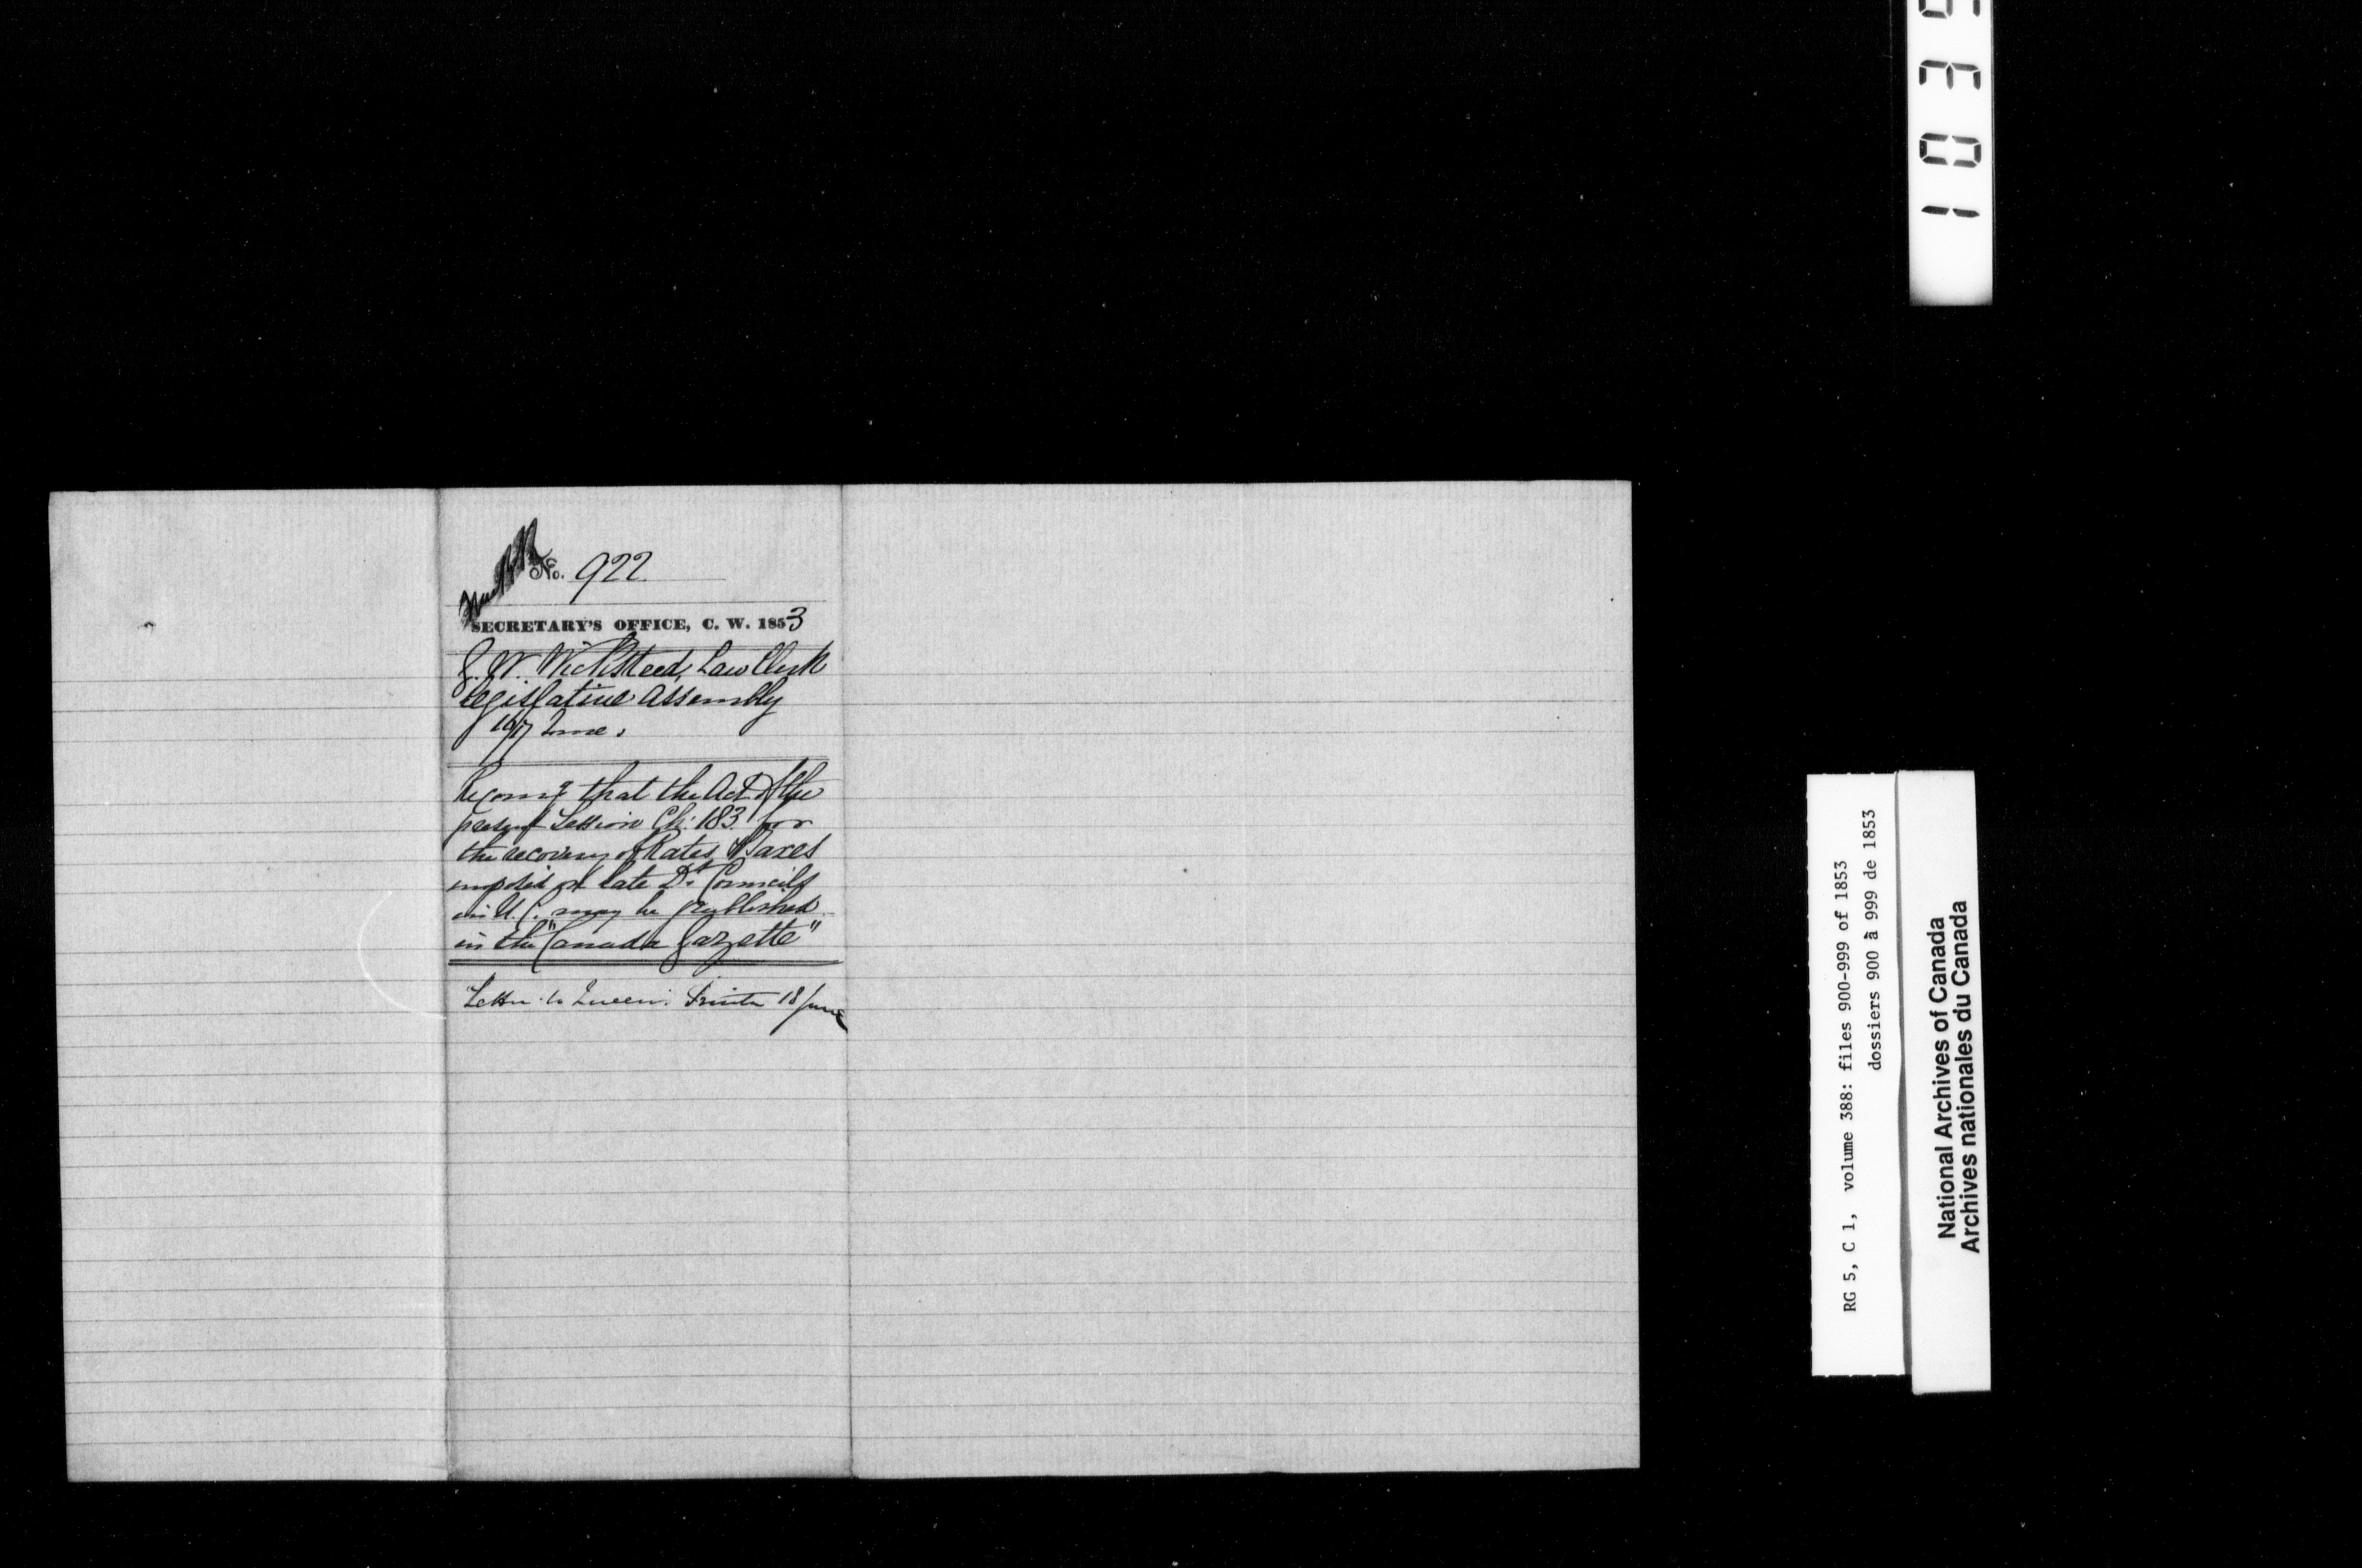 No. 922
SECRETARY'S OFFICE, C. W. 1853
G. W. Wicksteed, Law Clerk
Legislative Assembly
16/17 June.
Recomg that the Act of the
present Session Ch: 183. for
the recovery of Rates & Taxes
imposed by late Dt. Councils
in U. C. may be published
in the "Canada Gazette"
Letter to Queen's Printer 18 June
1035
RG 5, C 1, volume 388: files 900-999 of 1853
dossiers 900 à 999 de 1853
National Archives of Canada
Archives nationales du Canada